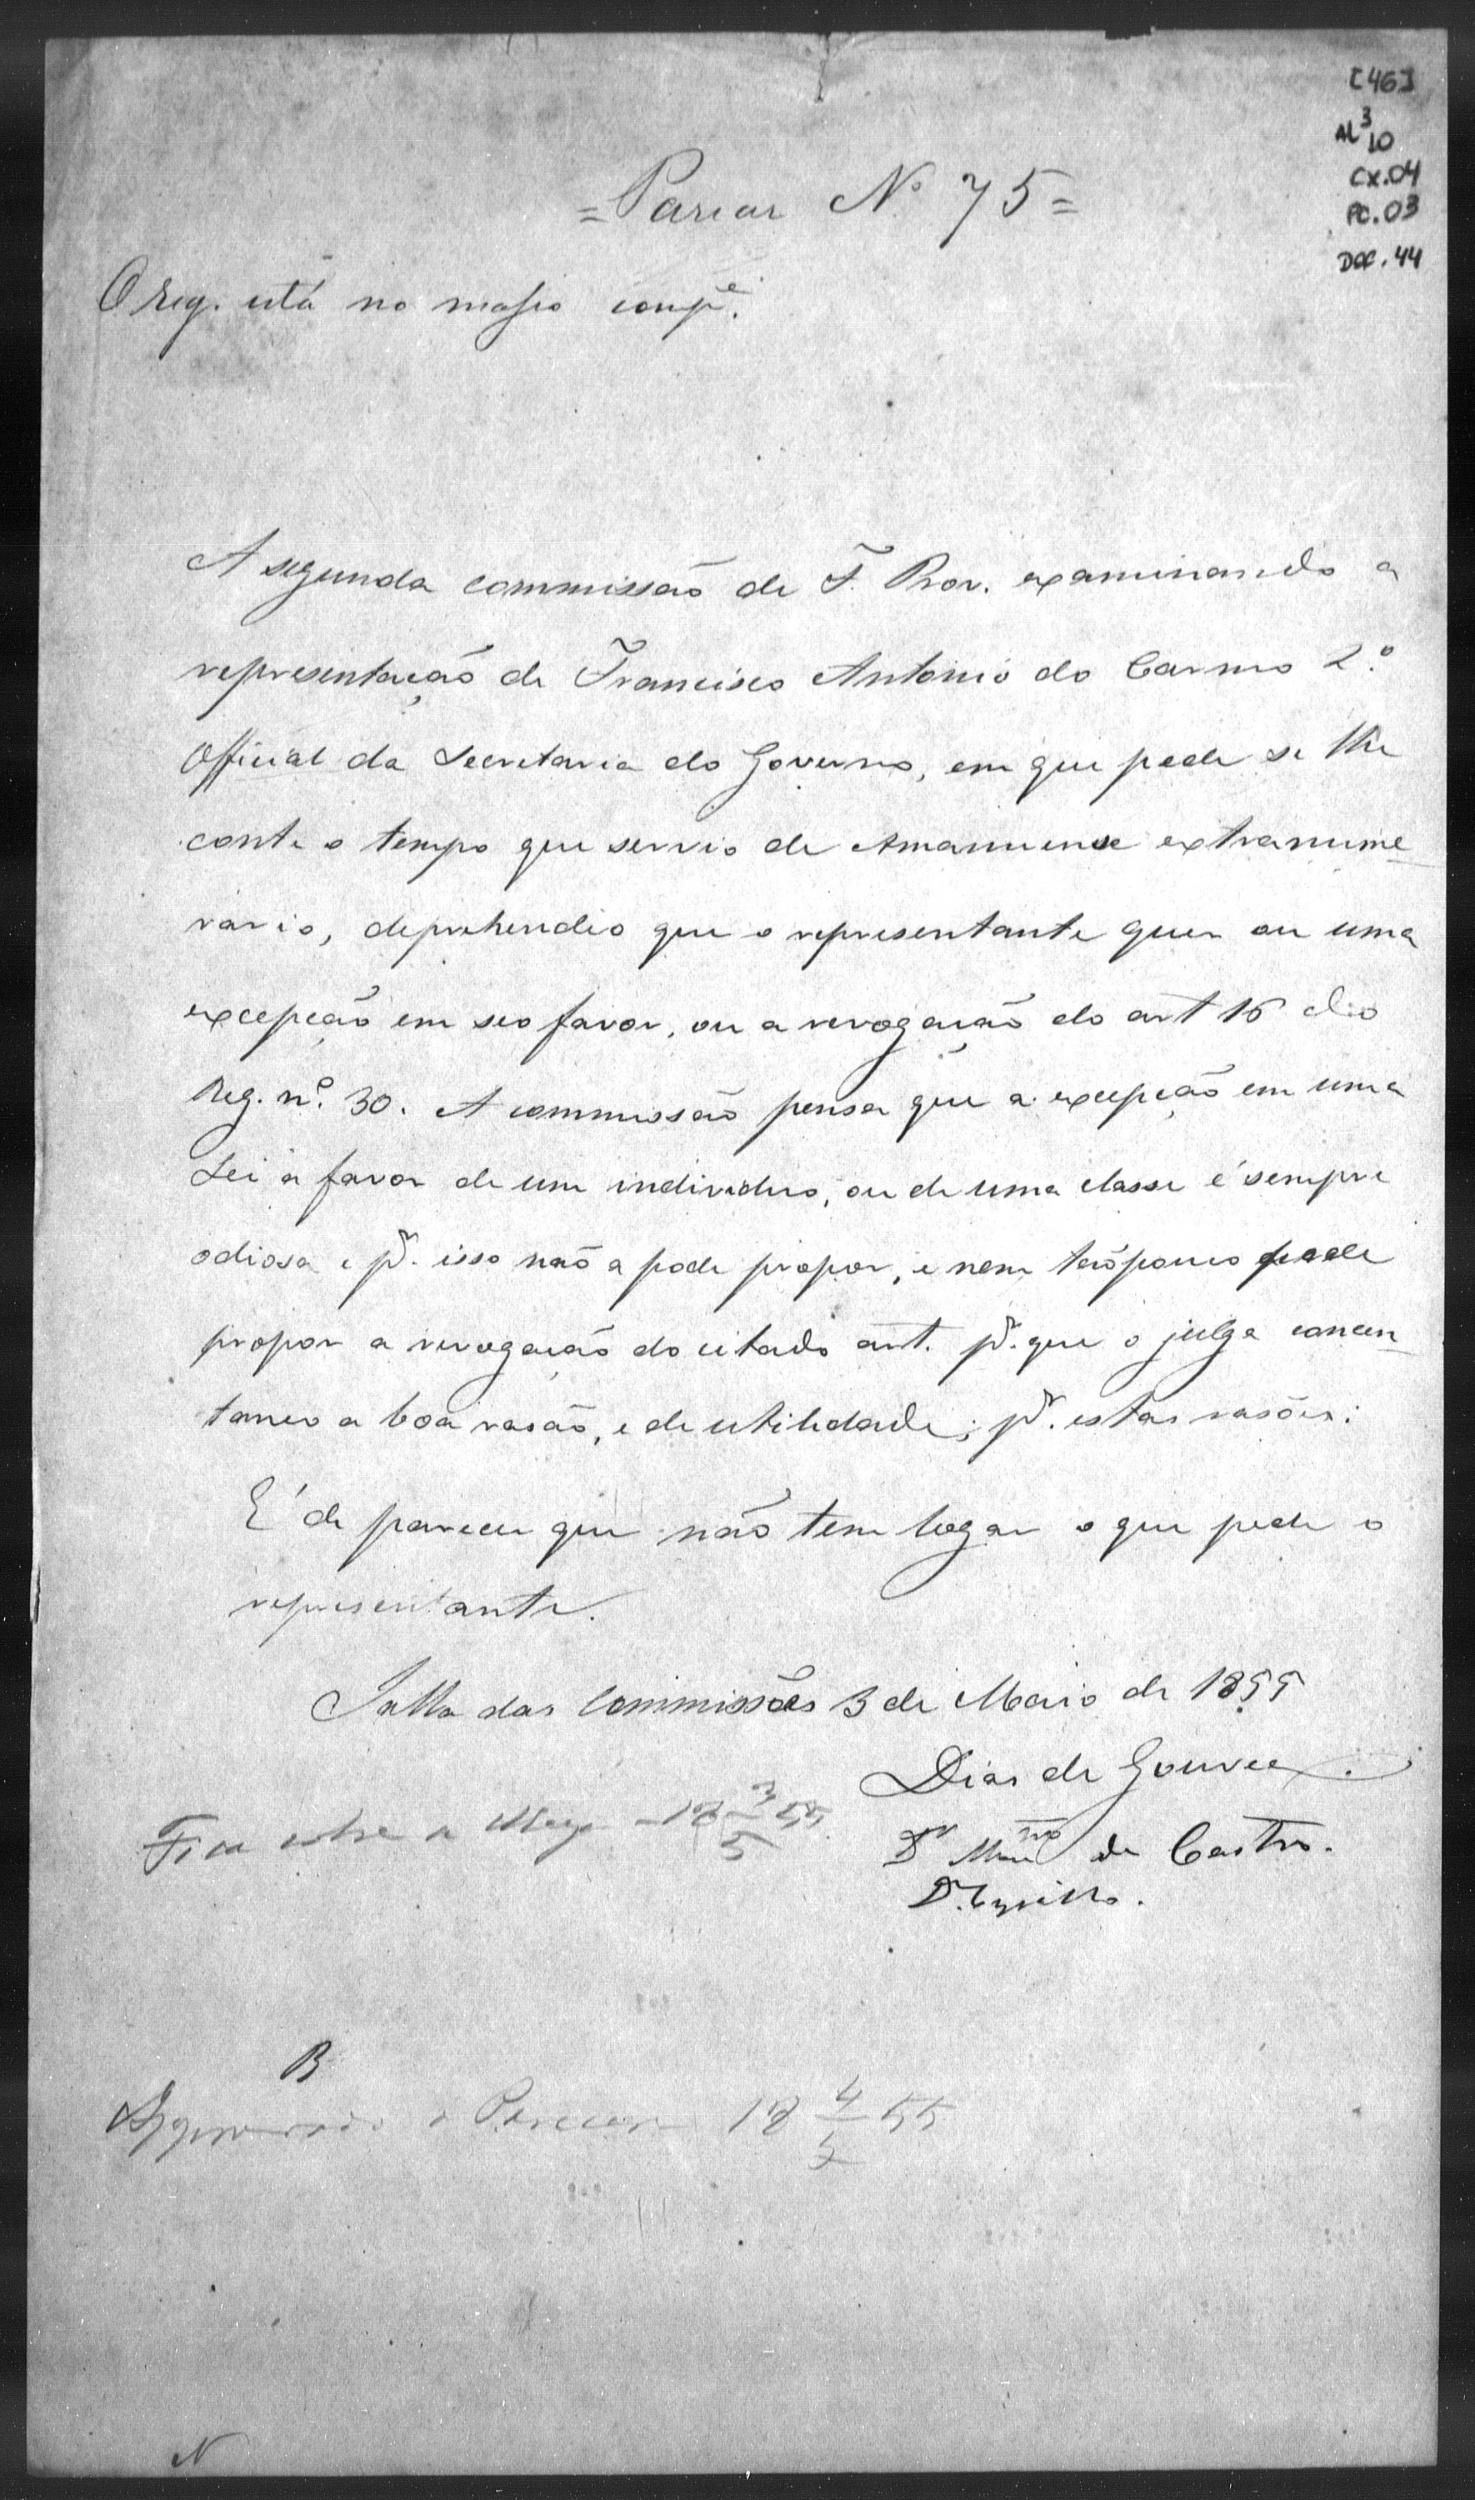 [46]
AL 3 10
CX.04
PC.03
DOC.44
= Parecer Nº 75 =
O req. está no masso compe.
A segunda commissão de F. Prov. examinando a
representação de Francisco Antonio do Carmo 2º
Official da Secretaria do Governo, em que pede se lhe
conte o tempo que servio de Amanuense extranume
rario, deprehendeo que o representante quer ou uma
excepção em seo favor, ou a revogação do art 16 do
Reg. nº 30. A commissão pensa que a excepção em uma
Lei a favor de um individuo, ou de uma classe é sempre
odiosa e pr. isso não a pode propor, e nem tãopouco pode
propor a revogação do citado art. pr. que o julga concen
taneo a boa rasão, e de utilidade; pr. estas rasões:
É de parecer que não tem logar o que pede o
representante.
Salla das Commissões 3 de Maio de 1855
Dias de Gouvea.
Fica sobre a Meza 18 3/5 55
Dr de Castro.
Dr. Cyrillo.
B
Approvado o Parecer 18 4/5 55
N